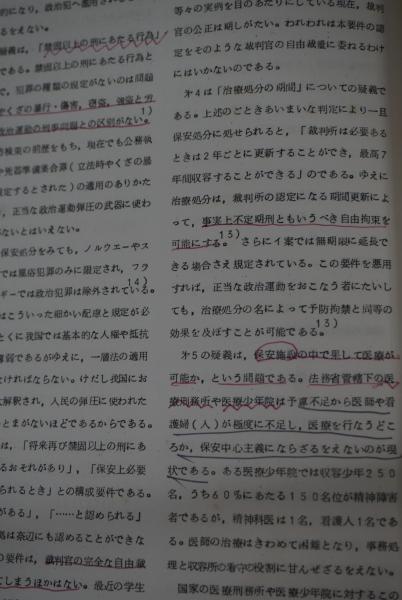 的になり，政治犯へ適用され
るをえない。
疑義は，「禁固以上の刑にあたる行為」
である。禁固以上の刑にあたる行為と
で，犯罪の種類の規定がないのは問題
やくざの暴行・傷害，窃盗，強盗と労
政治運動の刑事問題との区別がない。1)
検束の前歴をもち，現在でも公務執
や兇器準備集合罪（立法時やくざの暴
規定するとされた）の適用のありかた
，正当な政治運動弾圧の武器に使わ
ないとはいえない。
保安処分をみても，ノルウエーやス
では風俗犯罪のみに限定され，フラ
ギーでは政治犯罪は除外されている。14)
はこういった細かい配慮と規定が必
とくに我国では基本的な人権や抵抗
薄弱であるがゆえに，一層法の適用
なければならない。けだし我国にお
大解釈され，人民の弾圧に使われた
とまがないほどであるからである。
は，「将来再び禁固以上の刑にあ
るおそれがあり」，「保安上必要
られるとき」との構成要件である。
がある」，「……と認められる」
拠は奈辺にも認めることができな
の要件は，裁判官の完全な自由裁
てしまうほかはない。最近の学生
等々の実例を目のあたりにしている現在，裁判
官の公正は期しがたい。われわれは本要件の認
定をそのような裁判官の自由裁量に委ねるわけ
にはいかないのである。
オ4は「治療処分の期間」についての疑義で
ある。上述のごときあいまいな判定により一旦
保安処分に処せられると，「裁判所は必要ある
ときは2年ごとに更新することができ，最高7
年間収容することができる」のである。ゆえに
治療処分は，裁判所の認定になる期間更新によ
って，事実上不定期刑ともいうべき自由拘束を
可能にする。13) さらにイ案では無期限に延長で
きる場合さえ規定されている。この要件を悪用
すれば，正当な政治運動をおこなう者にたいし
ても，治療処分の名によって予防拘禁と同等の
効果を及ぼすことが可能である。13)
オ5の疑義は，保安施設の中で果して医療が
可能か，という問題である。法務省管轄下の医
療刑務所や医療少年院は予慮不足から医師や看
護婦（人）が極度に不足し，医療を行なうどこ
ろか，保安中心主義にならざるをえないのが現
状である。ある医療少年院では収容少年250
名，うち60％にあたる150名位が精神障害
者であるが，精神科医は1名，看護人1名であ
る。医師の治療はきわめて困難となり，事務処
理と収容所の看守の役割に甘んぜざるをえない。
国家の医療刑務所や医療少年院に対するこの